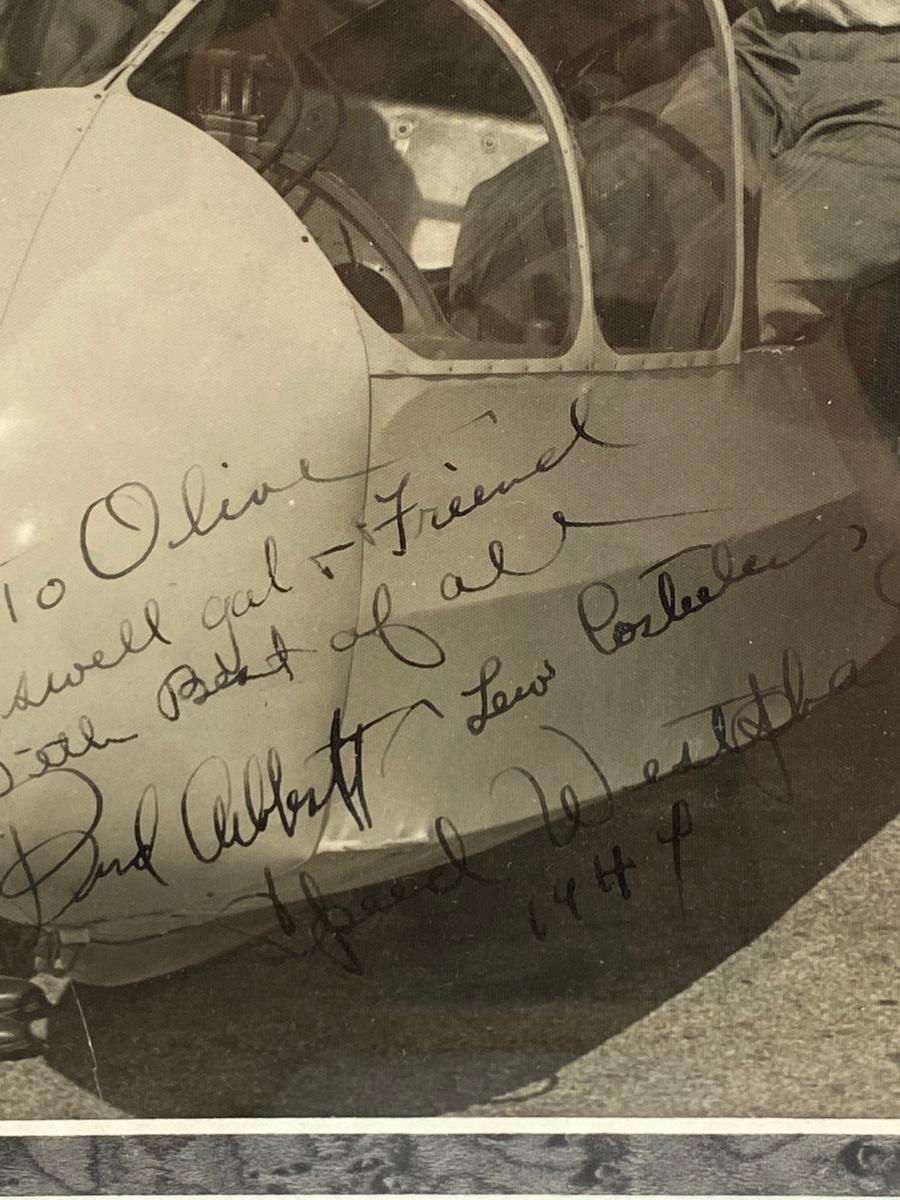 To Olive
swell gal + Friend
With Best of all
Bud Abbott Lew
Speed Westpha
194